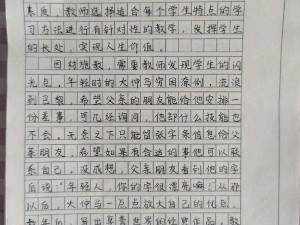 素质，教师选择适合每个学生特点的学
习方法进行有针对性的教学，发挥学生
的长处，实现人生价值。
因材施教，需教师发现学生的闪
光点，年轻时的大仲马穷困潦倒，流浪
到巴黎，希望父亲的朋友能给他安排一
份差事，可几经询问，他却什么技能也
不会，无奈之下只能留张字条信息给父
亲朋友，希望如果有合适的事他可以联
系自己，没成想，父亲朋友看到他的字
后说“年轻人，你的字很漂亮嘛！”从那
以后，大仲马一点点放大自己的优点，
数年后，写出享誉世界的经典作品，教